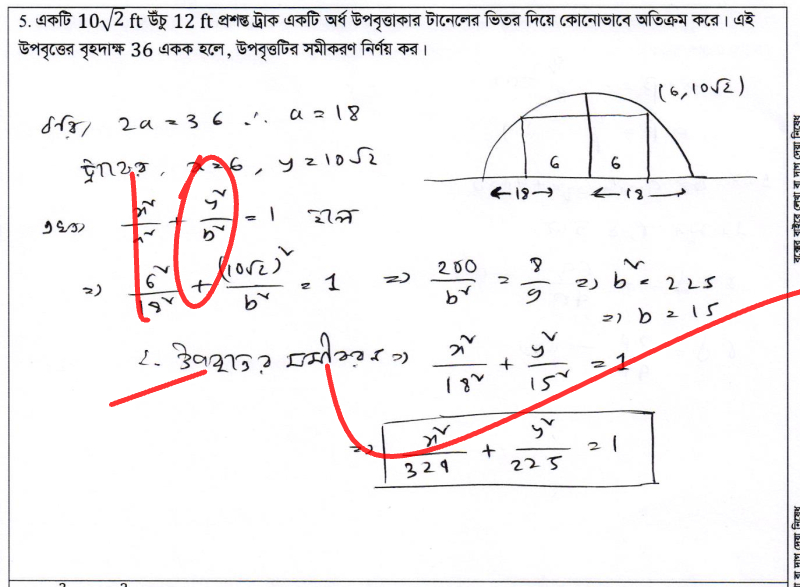 5. একটি 10√2 ft উঁচু 12 ft প্রশস্ত ট্রাক একটি অর্ধ উপবৃত্তাকার টানেলের ভিতর দিয়ে কোনোভাবে অতিক্রম করে। এই
উপবৃত্তের বৃহদাক্ষ 36 একক হলে, উপবৃত্তটির সমীকরণ নির্ণয় কর।
ধরি, 2a = 36 ∴ a = 18
(6, 10√2)
x = 6, y = 10√2
6 6
←18→ ←18→
x²/a² + y²/b² = 1 হলে
⇒ 6²/18² + (10√2)²/b² = 1 ⇒ 200/b² = 8/9 ⇒ b² = 225
⇒ b = 15
∴ উপবৃত্তের সমীকরণ ⇒ x²/18² + y²/15² = 1
⇒ x²/324 + y²/225 = 1